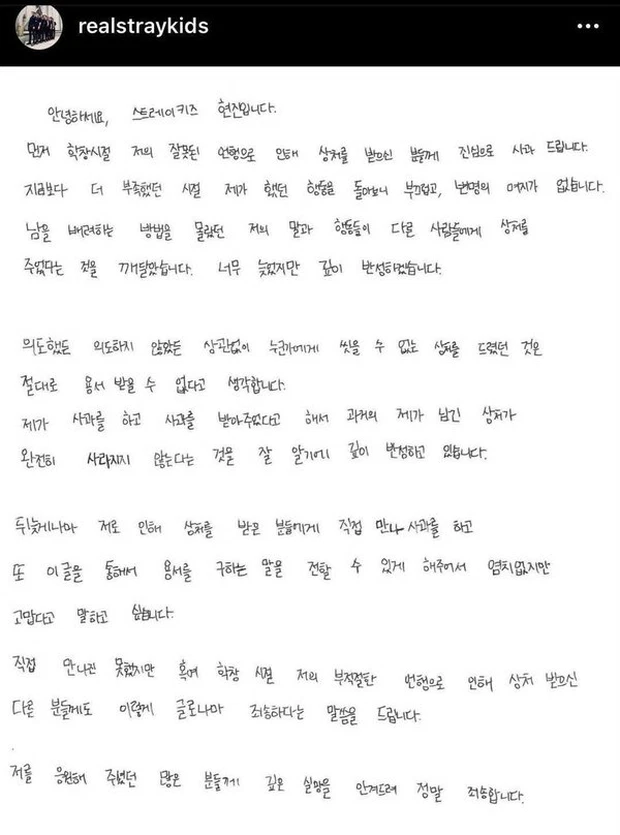 realstraykids
안녕하세요, 스트레이키즈 현진입니다.
먼저 학창시절 저의 잘못된 언행으로 인해 상처를 받으신 분들께 진심으로 사과 드립니다.
지금보다 더 부족했던 시절 제가 했던 행동을 돌아보니 부끄럽고, 변명의 여지가 없습니다.
남을 배려하는 방법을 몰랐던 저의 말과 행동들이 다른 사람들에게 상처를
주었다는 것을 깨달았습니다. 너무 늦었지만 깊이 반성하겠습니다.
의도했든 의도하지 않았든 상관없이 누군가에게 씻을 수 없는 상처를 드렸던 것은
절대로 용서 받을 수 없다고 생각합니다.
제가 사과를 하고 사과를 받아주었다고 해서 과거의 제가 남긴 상처가
완전히 사라지지 않는다는 것을 잘 알기에 깊이 반성하고 있습니다.
뒤늦게나마 저로 인해 상처를 받은 분들에게 직접 만나 사과를 하고
또 이 글을 통해서 용서를 구하는 말을 전할 수 있게 해주어서 염치없지만
고맙다고 말하고 싶습니다.
직접 만나진 못했지만 혹여 학창 시절 저의 부적절한 언행으로 인해 상처 받으신
다른 분들께도 이렇게 글로나마 죄송하다는 말씀을 드립니다.
저를 응원해 주셨던 많은 분들께 깊은 실망을 안겨드려 정말 죄송합니다.